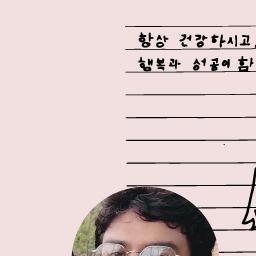 항상 건강하시고,
행복과 성공이 함